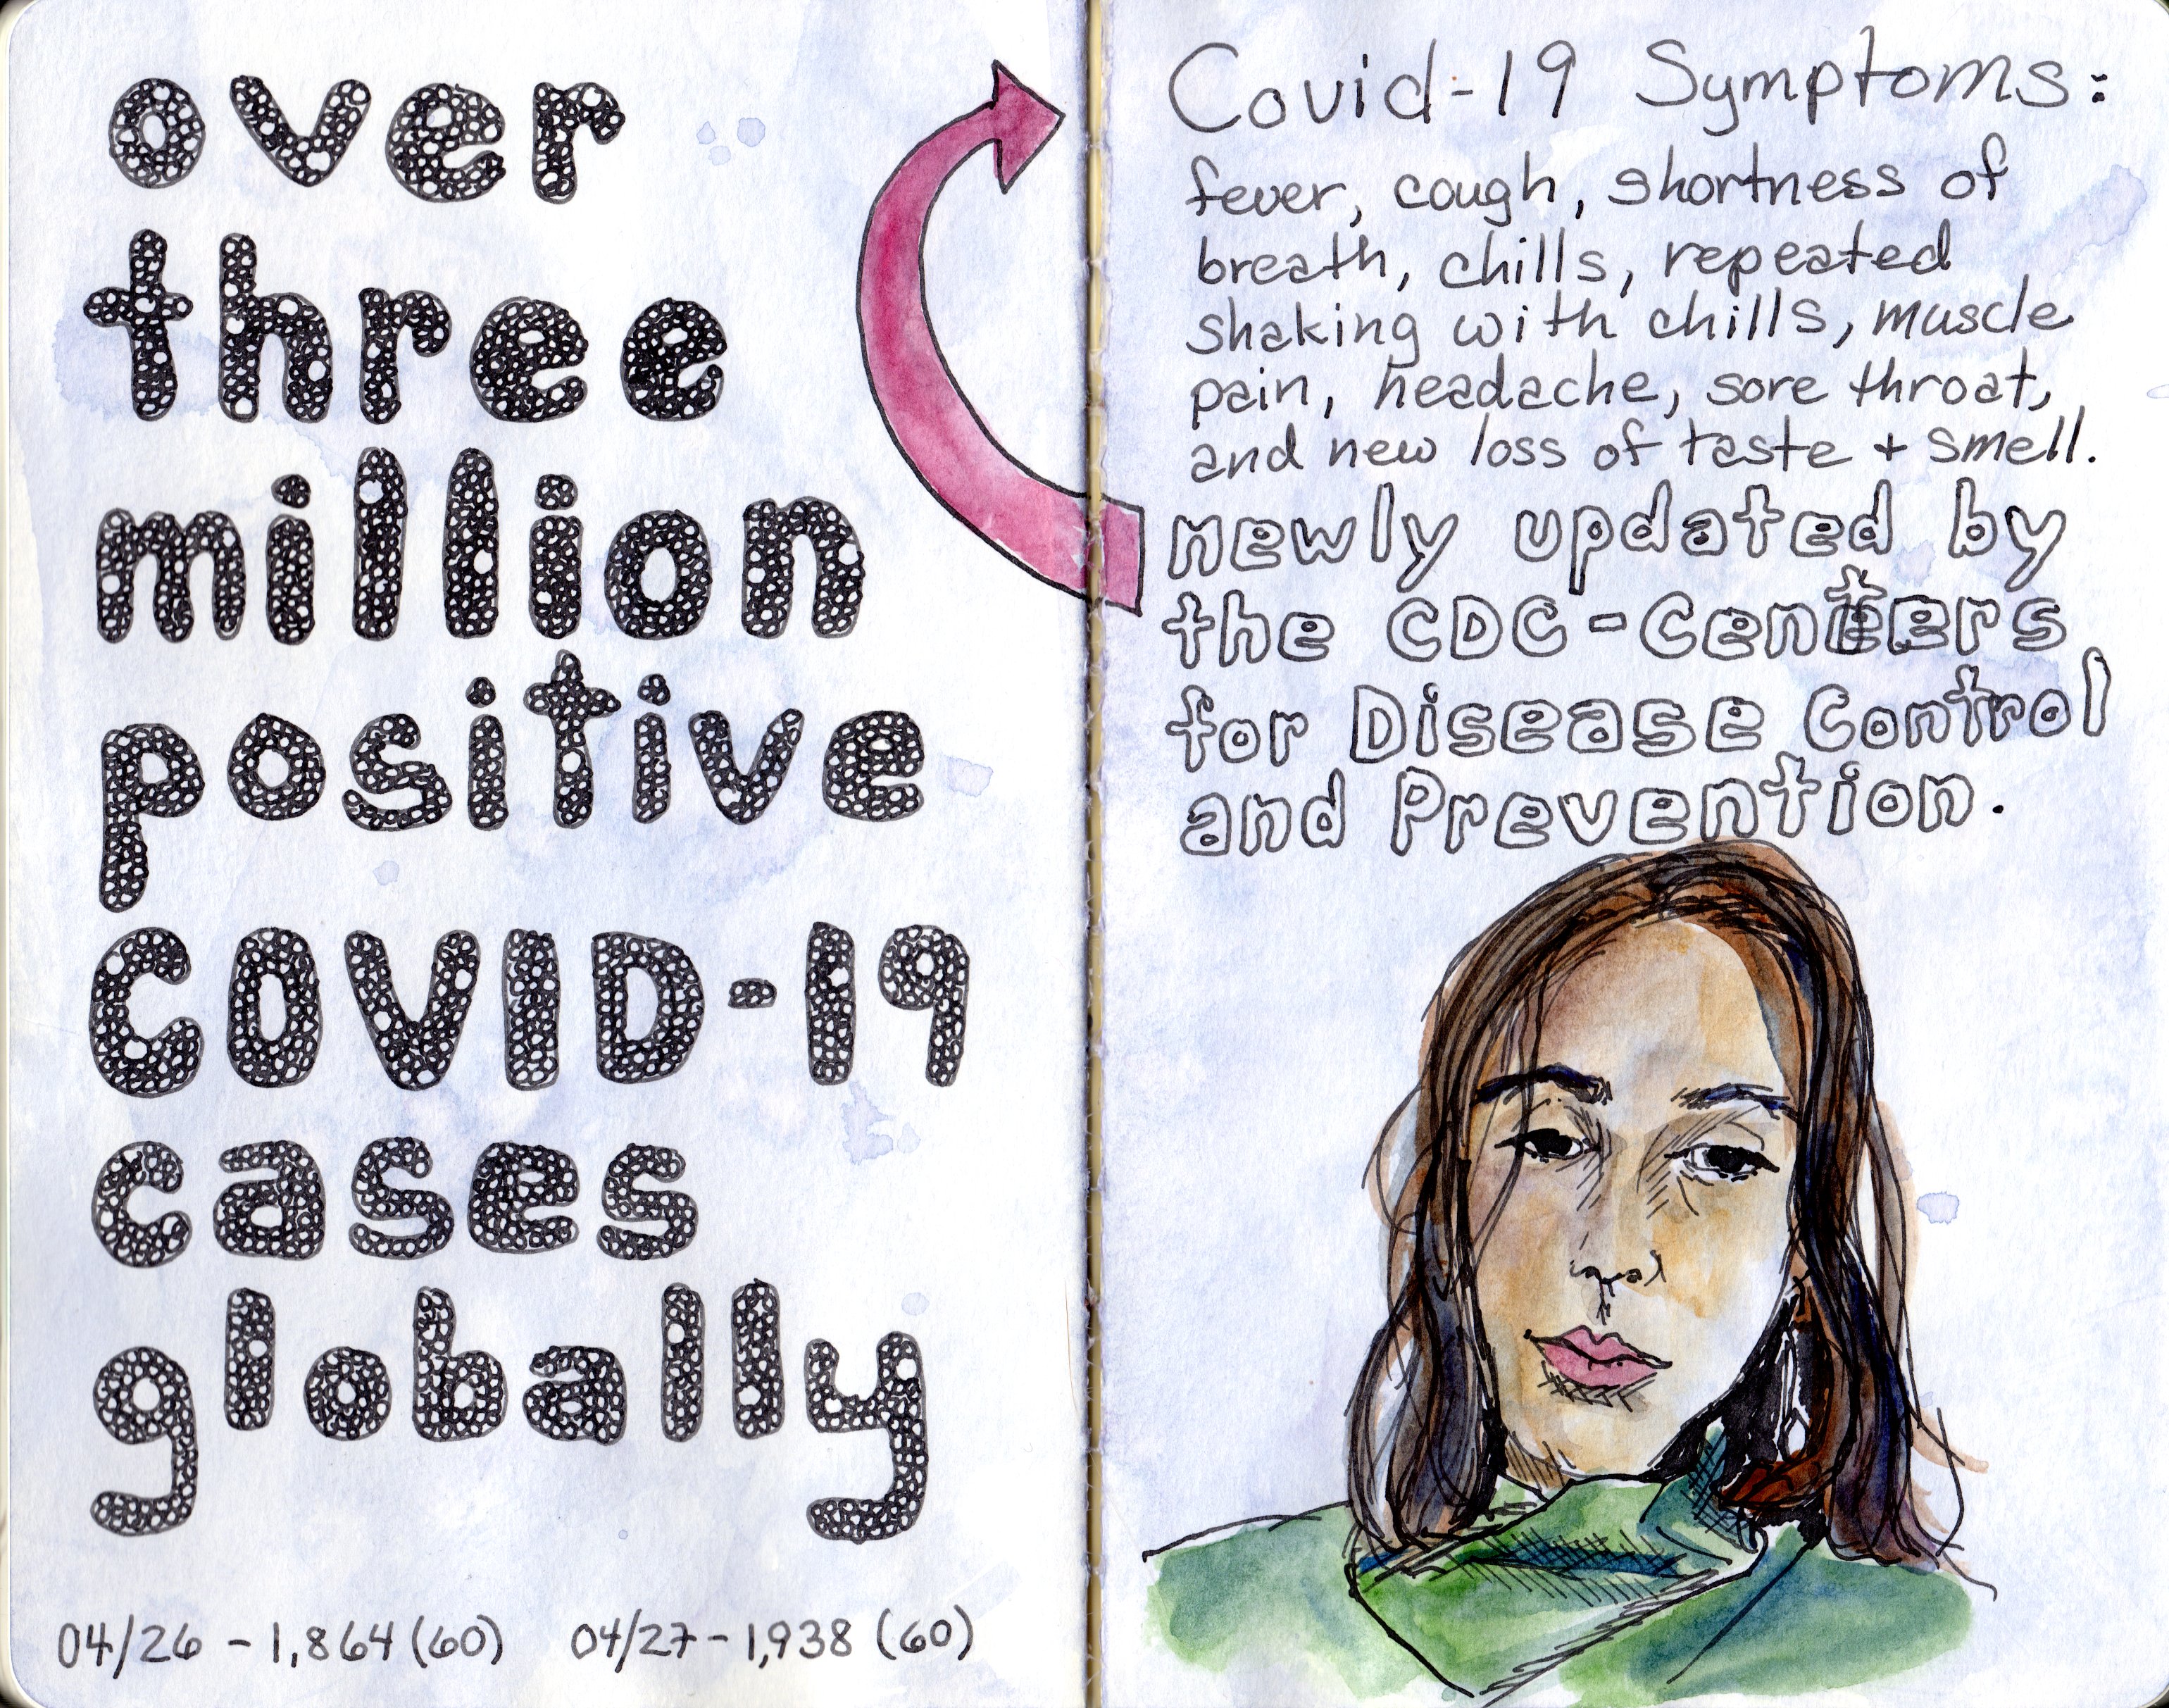 over
three
million
positive
COVID-19
cases
globally
04/26 - 1,864 (60) 04/27 - 1,938 (60)
Covid-19 Symptoms:
fever, cough, shortness of
breath, chills, repeated
shaking with chills, muscle
pain, headache, sore throat,
and new loss of taste + smell.
newly updated by
the CDC - Centers
for Disease Control
and Prevention.